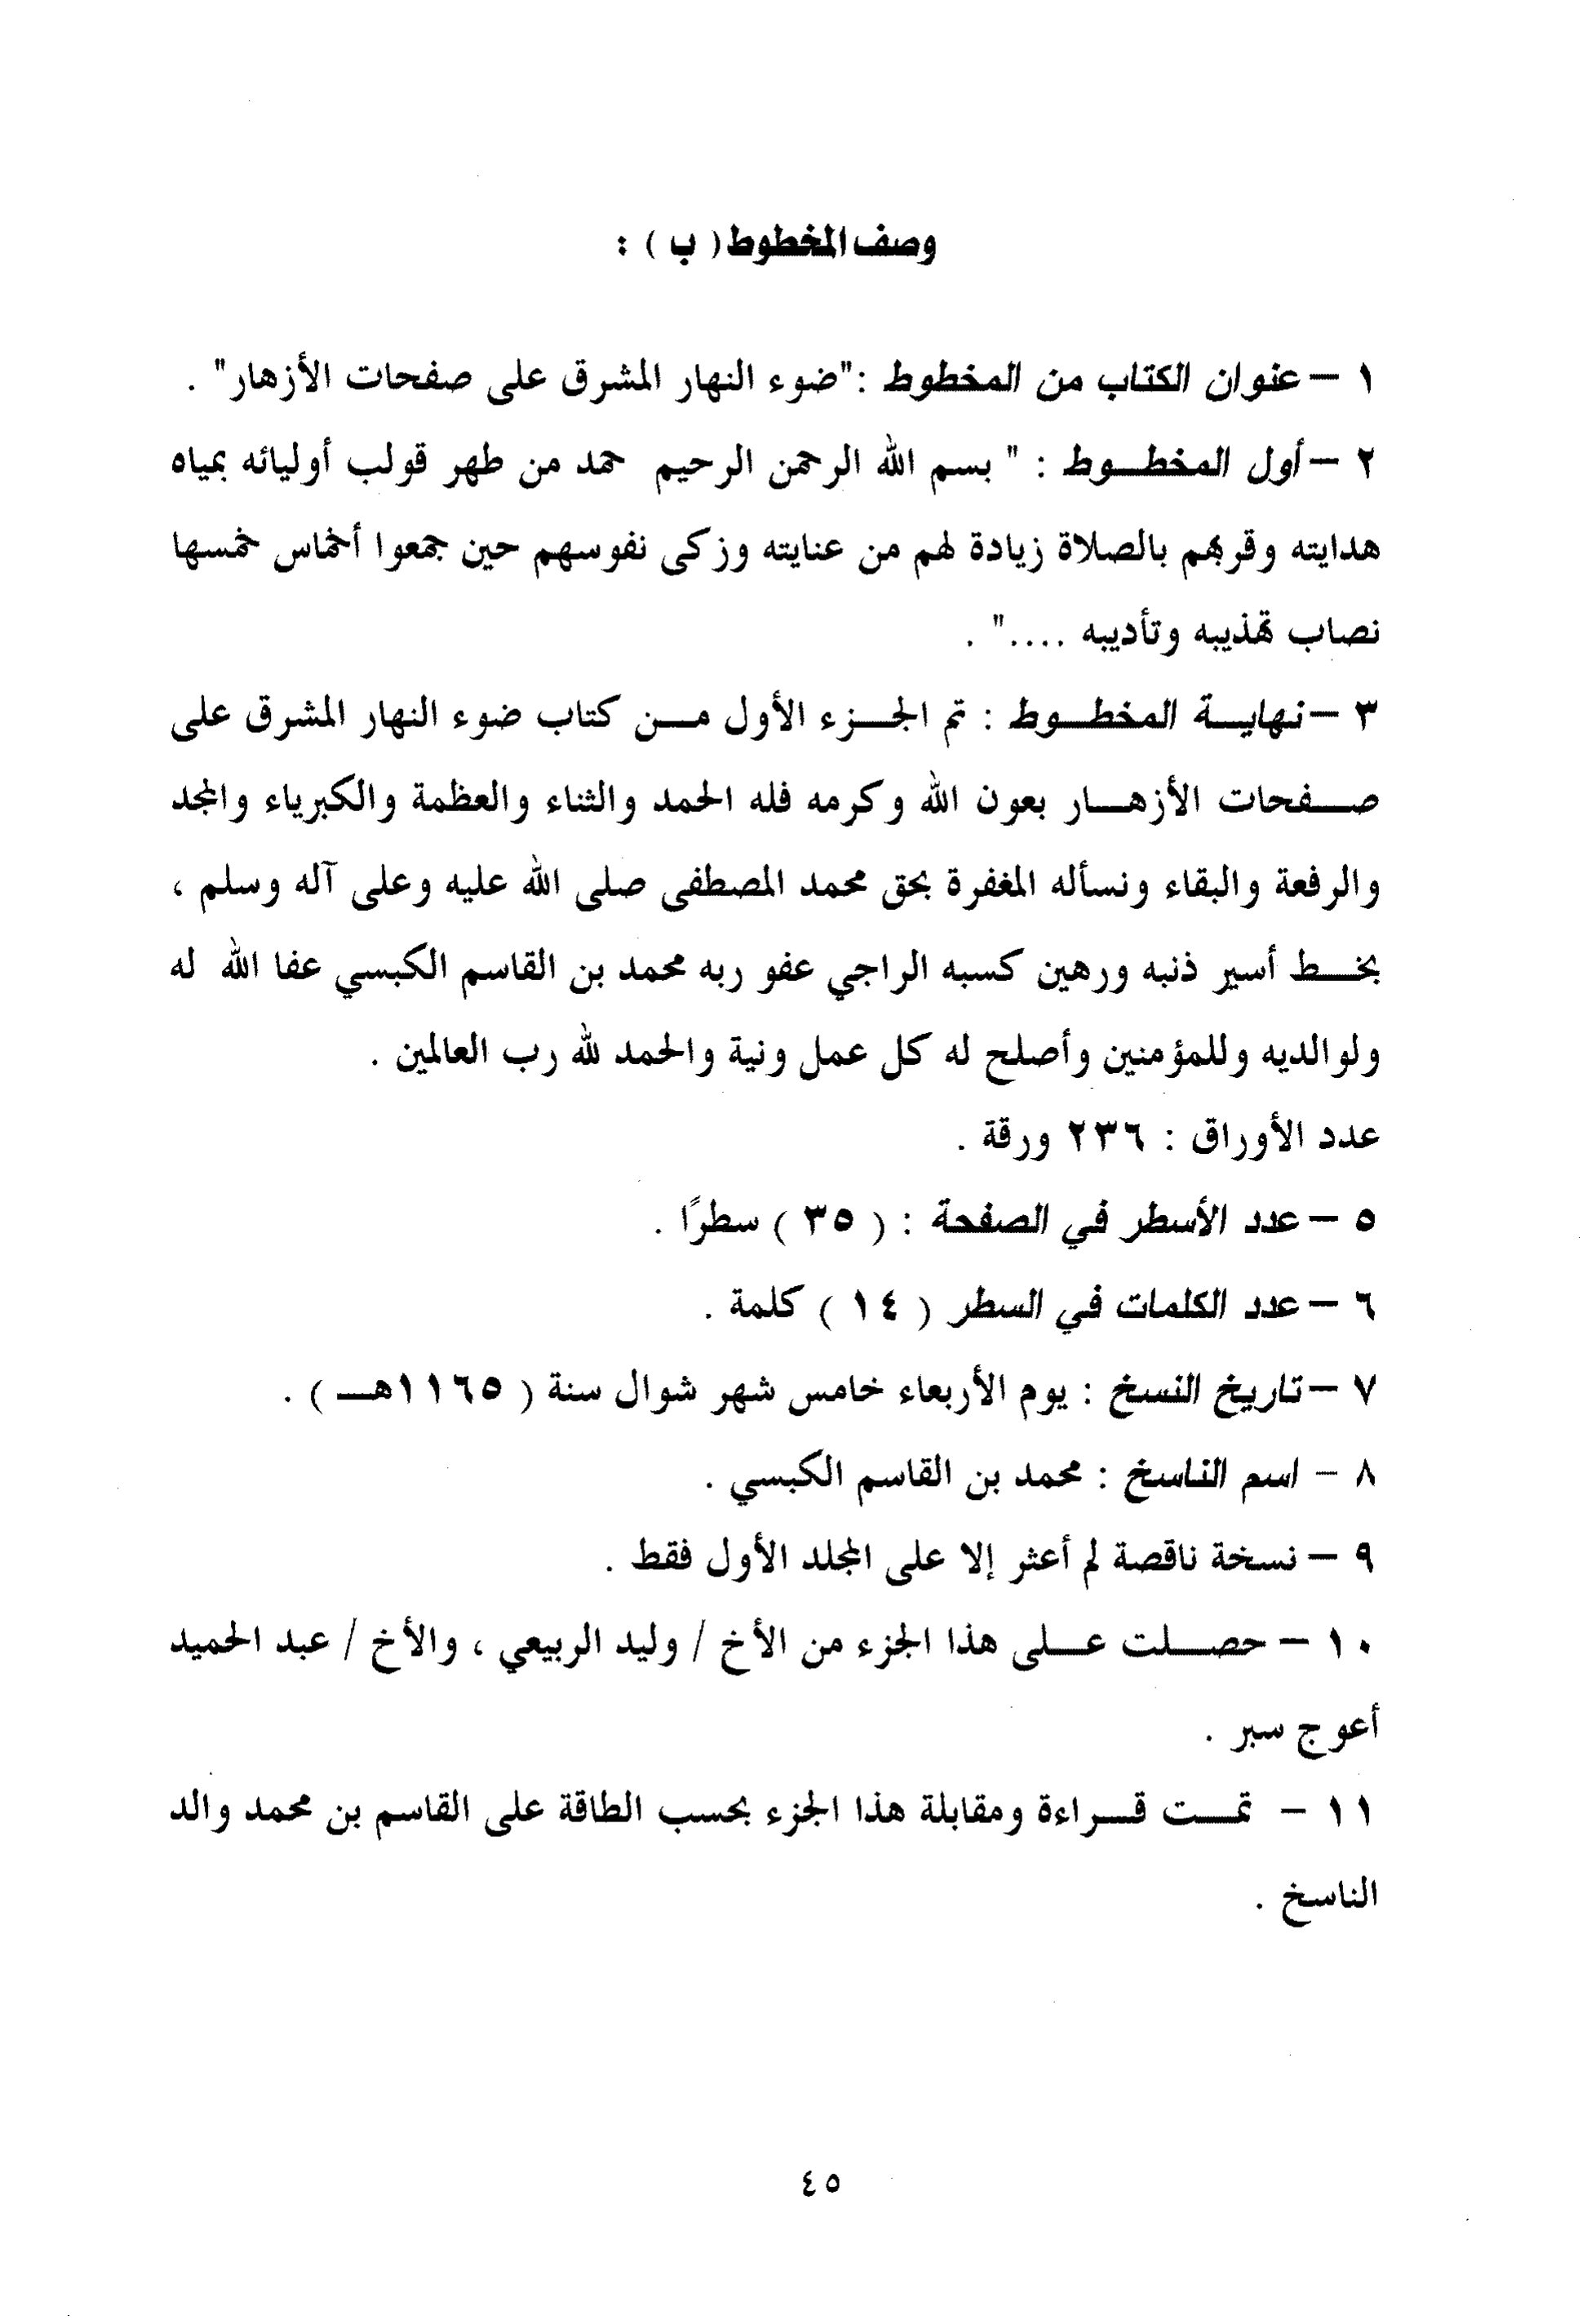 وصف المخطوط ( ب ) :
١ – عنوان الكتاب من المخطوط :"ضوء النهار المشرق على صفحات الأزهار" .
٢ – أول المخطــوط : " بسم الله الرحمن الرحيم حمد من طهر قولب أوليائه بمياه
هدايته وقربهم بالصلاة زيادة لهم من عنايته وزكى نفوسهم حين جمعوا أخماس خمسها
نصاب تهذيبه وتأديبه ...." .
٣ – نهايــة المخطــوط : تم الجــزء الأول مــن كتاب ضوء النهار المشرق على
صــفحات الأزهــار بعون الله وكرمه فله الحمد والثناء والعظمة والكبرياء والمجد
والرفعة والبقاء ونسأله المغفرة بحق محمد المصطفى صلى الله عليه وعلى آله وسلم ،
بخــط أسير ذنبه ورهين كسبه الراجي عفو ربه محمد بن القاسم الكبسي عفا الله له
ولوالديه وللمؤمنين وأصلح له كل عمل ونية والحمد لله رب العالمين .
عدد الأوراق : ٢٣٦ ورقة .
٥ – عدد الأسطر في الصفحة : ( ٣٥ ) سطرًا .
٦ – عدد الكلمات في السطر ( ١٤ ) كلمة .
٧ – تاريخ النسخ : يوم الأربعاء خامس شهر شوال سنة ( ١١٦٥هــ ) .
٨ – اسم الناسخ : محمد بن القاسم الكبسي .
٩ – نسخة ناقصة لم أعثر إلا على المجلد الأول فقط .
١٠ – حصــلت عــلى هذا الجزء من الأخ / وليد الربيعي ، والأخ / عبد الحميد
أعوج سبر .
١١ – تمــت قــراءة ومقابلة هذا الجزء بحسب الطاقة على القاسم بن محمد والد
الناسخ .
٤٥